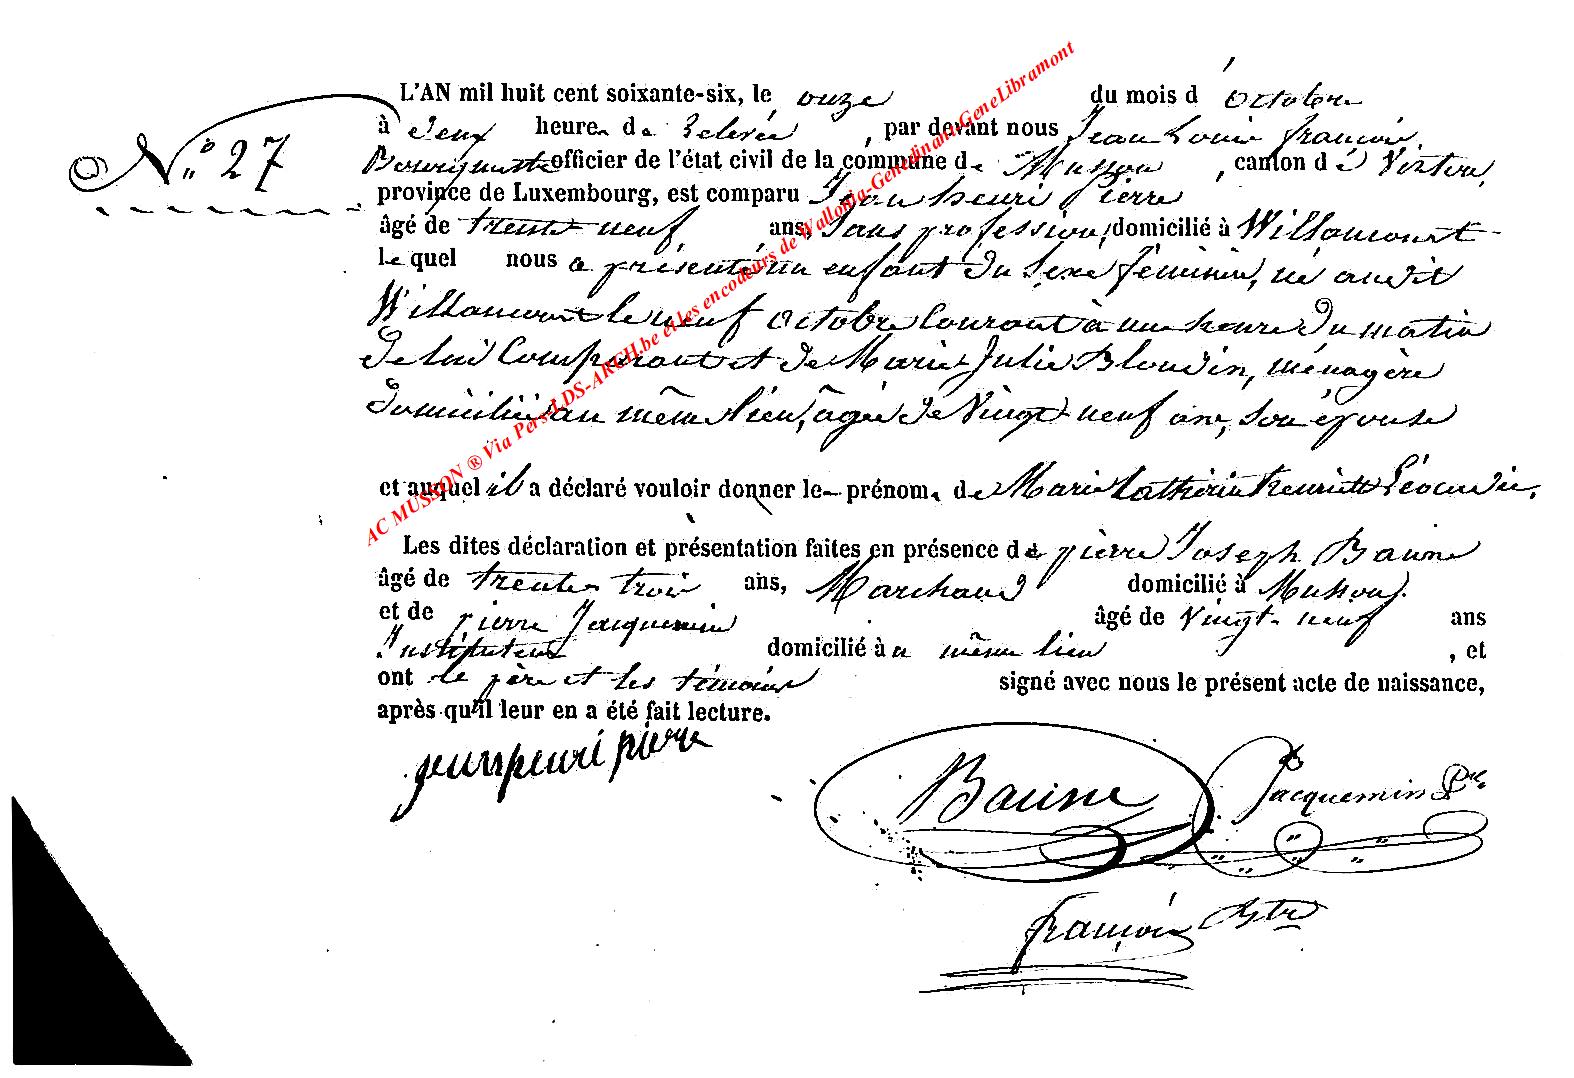 L'AN mil huit cent soixante-six, le onze du mois d'Octobre
N° 27
à deux heures de relevée, par devant nous Jean Louis François,
Bourgmestre officier de l'état civil de la commune de Musson, canton de Virton,
province de Luxembourg, est comparu Jean henri Pierre
âgé de trente neuf ans, Sans profession, domicilié à Willancourt
lequel nous a présenté un enfant du sexe féminin, né audit
Willancourt le neuf Octobre Courant à une heure du matin
de lui Comparant et de Marie Julie Blondin, ménagère
domiciliée au même lieu, âgée de Vingt neuf ans, son épouse
et auquel il a déclaré vouloir donner les prénoms de Marie Catherine henriette Léocadie.
Les dites déclaration et présentation faites en présence de pierre Joseph Baune
âgé de trente trois ans, Marchand domicilié à Musson
et de pierre Jacquemin âgé de Vingt neuf ans
Instituteur domicilié au même lieu, et
ont le père et les témoins signé avec nous le présent acte de naissance,
après qu'il leur en a été fait lecture.
jean henri pierre
Baune Jacquemin Pre
françois Bgtre
AC MUSSON ® Via Pers LDS-ARCH.be et les encodeurs de Wallonia-Genedinant-GeneLibramont